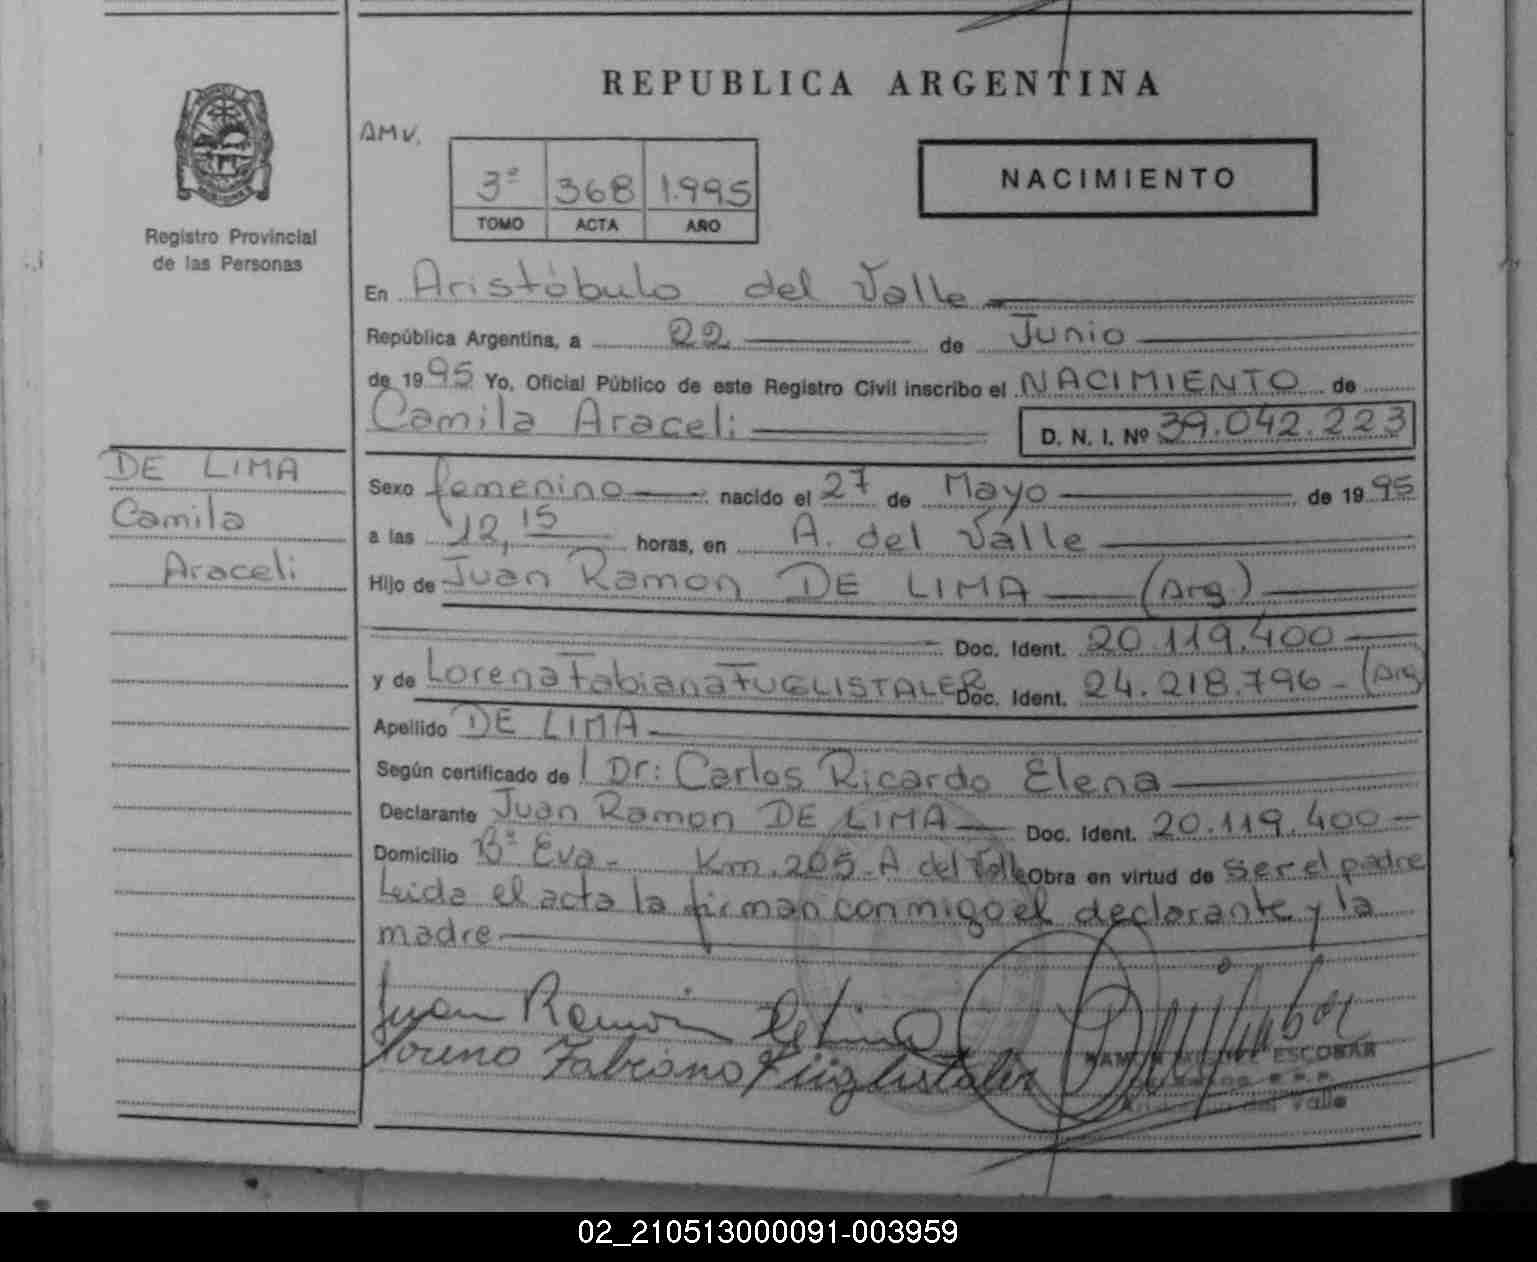 REPUBLICA ARGENTINA
AMV.
3º 368 1.995
TOMO ACTA AÑO
NACIMIENTO
Registro Provincial
de las Personas
En Aristóbulo del Valle
República Argentina, a 22 de Junio
de 1995 Yo, Oficial Público de este Registro Civil inscribo el NACIMIENTO de
Camila Araceli D. N. I. Nº 39.042.223
DE LIMA
Camila
Araceli
Sexo femenino nacido el 27 de Mayo de 1995
a las 12,15 horas, en A. del Valle
Hijo de Juan Ramon DE LIMA (Arg)
Doc. Ident. 20.119.400
y de Lorena Fabiana FUGLISTALER Doc. Ident. 24.218.796 - (Arg)
Apellido DE LIMA
Según certificado de l Dr: Carlos Ricardo Elena
Declarante Juan Ramon DE LIMA Doc. Ident. 20.119.400
Domicilio Bº Eva - Km. 205 - A del Valle Obra en virtud de ser el padre
Leida el acta la firman conmigo el declarante y la
madre
Juan Ramón de Lima
Lorena Fabiana Füglistaler
ESCOBAR
del Valle
02_210513000091-003959